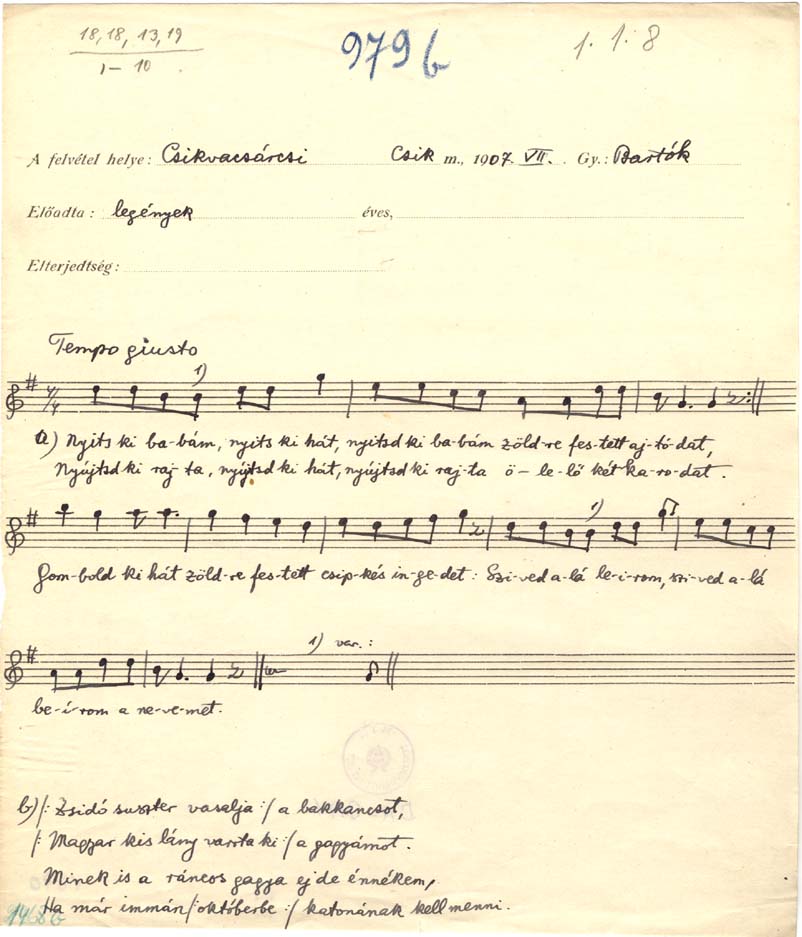 18, 18, 13, 19
1– 10
979 b
1. 1. 8
A felvétel helye: Csikvacsárcsi Csik m., 1907. VII. Gy.: Bartók
Előadta: legények éves,
Elterjedtség:
Tempo giusto
1)
4/4
a) Nyits ki ba-bám, nyits ki hát, nyitsd ki ba-bám zöld-re fes-tett aj-tó-dat,
Nyújtsd ki raj-ta, nyújtsd ki hát, nyújtsd ki raj-ta ö-le-lő két ka-ro-dat.
1)
Gom-bold ki hát zöld-re fes-tett csip-kés in-ge-det: Szi-ved a-lá be-i-rom, szi-ved a-lá
1) var.:
be-í-rom a ne-ve-met.
b) /: Zsidó suszter vasalja :/ a bakkancsot,
/: Magyar kis lány varrta ki :/ a gagyámot.
Minek is a ráncos gagya ej de énnékem,
Ha már immán /: októberbe :/ katonának kell menni.
1468 b